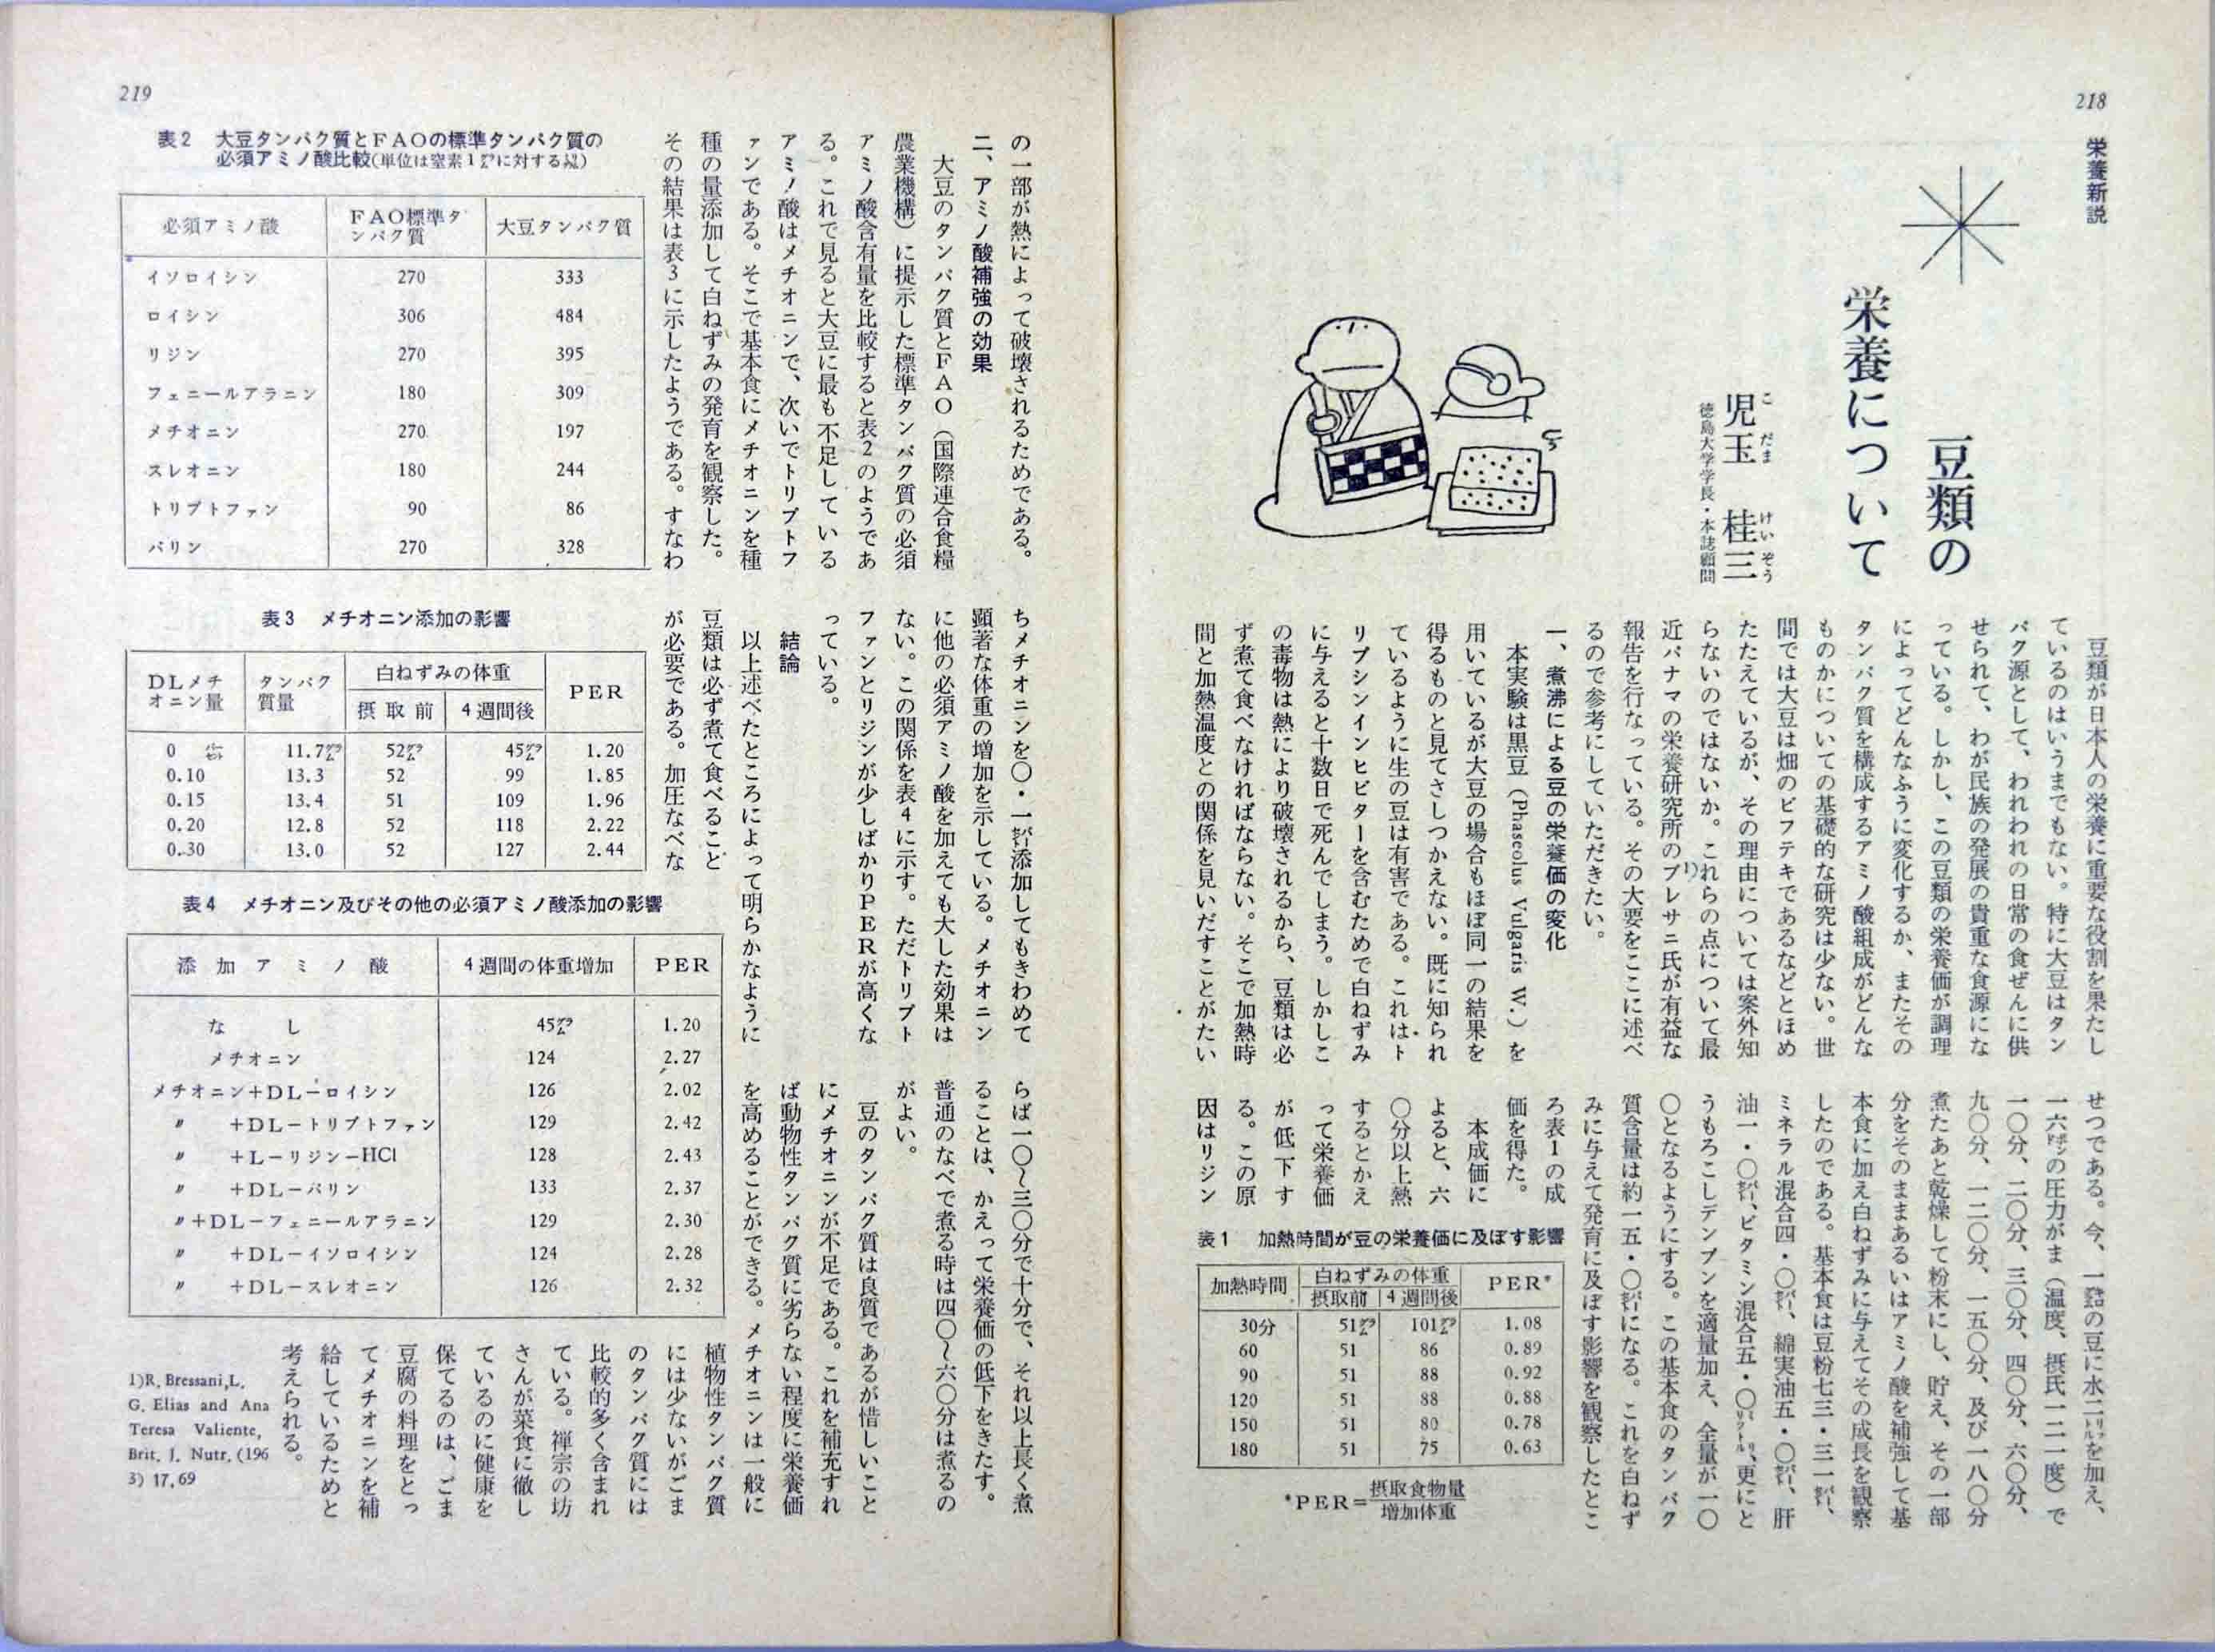 218
栄養新説
豆類の
栄養について
児玉 桂三
こ だま けい ぞう
徳島大学学長・本誌顧問
豆類が日本人の栄養に重要な役割を果たし
ているのはいうまでもない。特に大豆はタン
パク源として、われわれの日常の食ぜんに供
せられて、わが民族の発展の貴重な食源にな
っている。しかし、この豆類の栄養価が調理
によってどんなふうに変化するか、またその
タンパク質を構成するアミノ酸組成がどんな
ものかについての基礎的な研究は少ない。世
間では大豆は畑のビフテキであるなどとほめ
たたえているが、その理由については案外知
らないのではないか。これらの点について最
近パナマの栄養研究所のブレサニ氏1)が有益な
報告を行なっている。その大要をここに述べ
るので参考にしていただきたい。
一、煮沸による豆の栄養価の変化
本実験は黒豆（Phaseolus Vulgaris W.）を
用いているが大豆の場合もほぼ同一の結果を
得るものと見てさしつかえない。既に知られ
ているように生の豆は有害である。これはト
リプシンインヒビターを含むためで白ねずみ
に与えると十数日で死んでしまう。しかしこ
の毒物は熱により破壊されるから、豆類は必
ず煮て食べなければならない。そこで加熱時
間と加熱温度との関係を見いだすことがたい
せつである。今、一㌔の豆に水二㍑を加え、
一六㍀の圧力がま（温度、摂氏一二一度）で
一〇分、二〇分、三〇分、四〇分、六〇分、
九〇分、一二〇分、一五〇分、及び一八〇分
煮たあと乾燥して粉末にし、貯え、その一部
分をそのままあるいはアミノ酸を補強して基
本食に加え白ねずみに与えてその成長を観察
したのである。基本食は豆粉七三・三一㌫、
ミネラル混合四・〇㌫、綿実油五・〇㌫、肝
油一・〇㌫、ビタミン混合五・〇ミリリットル、更にと
うもろこしデンプンを適量加え、全量が一〇
〇となるようにする。この基本食のタンパク
質含量は約一五・〇㌫になる。これを白ねず
みに与えて発育に及ぼす影響を観察したとこ
ろ表1の成
価を得た。
本成価に
よると、六
〇分以上熱
するとかえ
って栄養価
が低下す
る。この原
因はリジン
表1 加熱時間が豆の栄養価に及ぼす影響
加熱時間 白ねずみの体重 PER*
摂取前 4週間後
30分 51㌘ 101㌘ 1.08
60 51 86 0.89
90 51 88 0.92
120 51 88 0.88
150 51 80 0.78
180 51 75 0.63
*PER=摂取食物量
増加体重
219
の一部が熱によって破壊されるためである。
二、アミノ酸補強の効果
大豆のタンパク質とFAO（国際連合食糧
農業機構）に提示した標準タンパク質の必須
アミノ酸含有量を比較すると表2のようであ
る。これで見ると大豆に最も不足している
アミノ酸はメチオニンで、次いでトリプトフ
ァンである。そこで基本食にメチオニンを種
種の量添加して白ねずみの発育を観察した。
その結果は表3に示したようである。すなわ
ちメチオニンを〇・一㌫添加してもきわめて
顕著な体重の増加を示している。メチオニン
に他の必須アミノ酸を加えても大した効果は
ない。この関係を表4に示す。ただトリプト
ファンとリジンが少しばかりPERが高くな
っている。
結論
以上述べたところによって明らかなように
豆類は必ず煮て食べること
が必要である。加圧なべな
らば一〇〜三〇分で十分で、それ以上長く煮
ることは、かえって栄養価の低下をきたす。
普通のなべで煮る時は四〇〜六〇分は煮るの
がよい。
豆のタンパク質は良質であるが惜しいこと
にメチオニンが不足である。これを補充すれ
ば動物性タンパク質に劣らない程度に栄養価
を高めることができる。メチオニンは一般に
植物性タンパク質
には少ないがごま
のタンパク質には
比較的多く含まれ
ている。禅宗の坊
さんが菜食に徹し
ているのに健康を
保てるのは、ごま
豆腐の料理をとっ
てメチオニンを補
給しているためと
考えられる。
表2 大豆タンパク質とFAOの標準タンパク質の
必須アミノ酸比較(単位は窒素1㌘に対する㍉㌘)
必須アミノ酸 FAO標準タンパク質 大豆タンパク質
イソロイシン 270 333
ロイシン 306 484
リジン 270 395
フェニールアラニン 180 309
メチオニン 270 197
スレオニン 180 244
トリプトファン 90 86
バリン 270 328
表3 メチオニン添加の影響
DLメチオニン量 タンパク質量 白ねずみの体重 PER
摂取前 4週間後
0㌫ 11.7㌘ 52㌘ 45㌘ 1.20
0.10 13.3 52 99 1.85
0.15 13.4 51 109 1.96
0.20 12.8 52 118 2.22
0.30 13.0 52 127 2.44
表4 メチオニン及びその他の必須アミノ酸添加の影響
添加アミノ酸 4週間の体重増加 PER
なし 45㌘ 1.20
メチオニン 124 2.27
メチオニン+DL−ロイシン 126 2.02
〃 +DL−トリプトファン 129 2.42
〃 +L−リジン−HCl 128 2.43
〃 +DL−バリン 133 2.37
〃+DL−フェニールアラニン 129 2.30
〃 +DL−イソロイシン 124 2.28
〃 +DL−スレオニン 126 2.32
1)R. Bressani,L.
G. Elias and Ana
Teresa Valiente,
Brit. J. Nutr. (196
3) 17,69